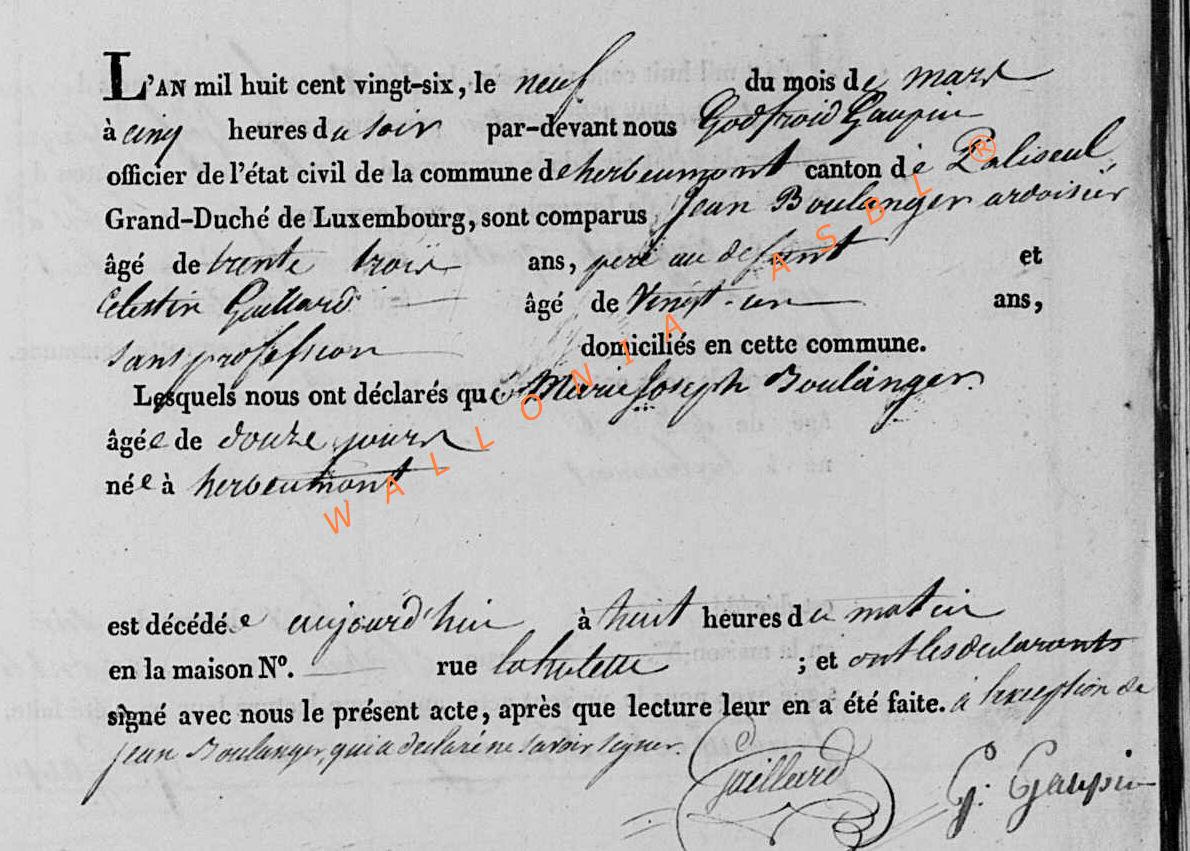 L'AN mil huit cent vingt-six, le neuf du mois de mars
à cinq heures du soir par-devant nous Godfroid Gaupin
officier de l'état civil de la commune de herbeumont canton de Paliseul
Grand-Duché de Luxembourg, sont comparus Jean Boulanger ardoisier
âgé de trente trois ans, pere au defunt et
Celestin Gaillard âgé de Vingt-un ans,
sans profession domiciliés en cette commune.
Lesquels nous ont déclarés que Marie Joseph Boulanger.
âgée de douze jours
née à herbeumont
est décédée aujourd'hui à huit heures du matin
en la maison N°. rue ; et ont les declarants
signé avec nous le présent acte, après que lecture leur en a été faite. à l'exception de
Jean Boulanger, qui a declaré ne savoir signer.
Gaillard G. Gaupin
WALLONIA ASBL ®